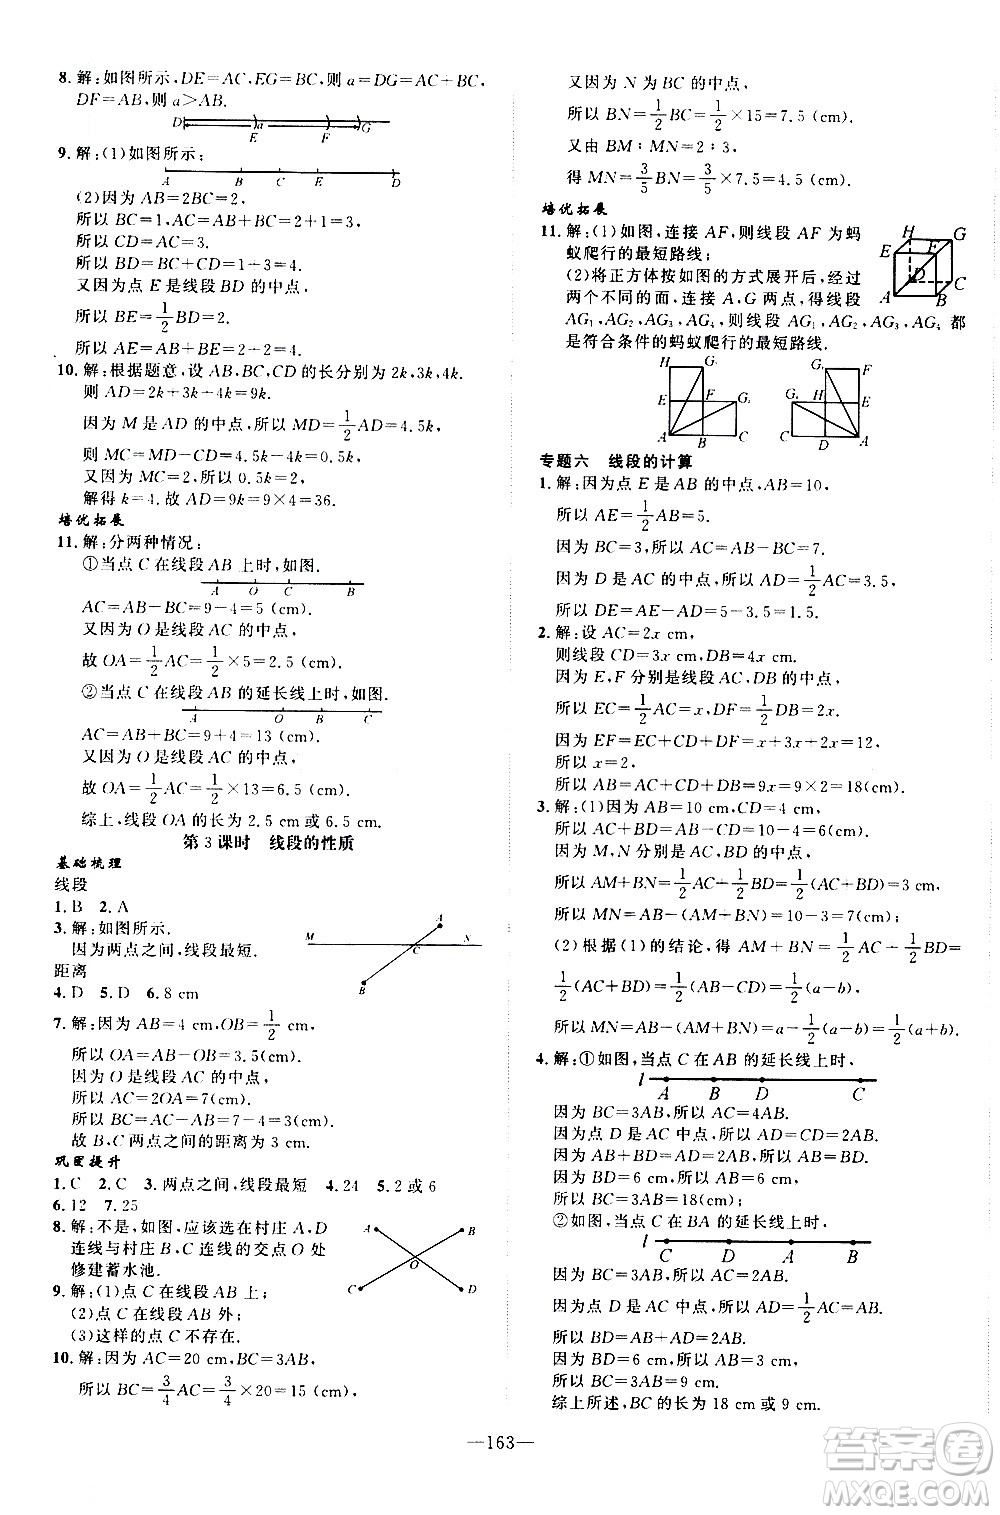 8. 解:如图所示,DE=AC,EG=BC,则 a=DG=AC+BC,
DF=AB,则 a>AB.
D a E F G
9. 解:(1)如图所示:
A B C E D
(2)因为 AB=2BC=2,
所以 BC=1,AC=AB+BC=2+1=3,
所以 CD=AC=3.
所以 BD=BC+CD=1+3=4.
又因为点 E 是线段 BD 的中点,
所以 BE=1/2BD=2.
所以 AE=AB+BE=2+2=4.
10. 解:根据题意,设 AB,BC,CD 的长分别为 2k,3k,4k.
则 AD=2k+3k+4k=9k.
因为 M 是 AD 的中点,所以 MD=1/2AD=4.5k,
则 MC=MD−CD=4.5k−4k=0.5k.
又因为 MC=2,所以 0.5k=2.
解得 k=4.故 AD=9k=9×4=36.
培优拓展
11. 解:分两种情况:
①当点 C 在线段 AB 上时,如图.
A O C B
AC=AB−BC=9−4=5(cm).
又因为 O 是线段 AC 的中点,
故 OA=1/2AC=1/2×5=2.5(cm).
②当点 C 在线段 AB 的延长线上时,如图.
A O B C
AC=AB+BC=9+4=13(cm).
又因为 O 是线段 AC 的中点,
故 OA=1/2AC=1/2×13=6.5(cm).
综上,线段 OA 的长为 2.5 cm或 6.5 cm.
第 3 课时 线段的性质
基础梳理
线段
1. B 2. A
3. 解:如图所示.
因为两点之间,线段最短.
M A C N B
距离
4. D 5. D 6. 8 cm
7. 解:因为 AB=4 cm,OB=1/2 cm,
所以 OA=AB−OB=3.5(cm).
因为 O 是线段 AC 的中点,
所以 AC=2OA=7(cm).
所以 BC=AC−AB=7−4=3(cm).
故 B,C 两点之间的距离为 3 cm.
巩固提升
1. C 2. C 3. 两点之间,线段最短 4. 24 5. 2 或 6
6. 12 7. 25
8. 解:不是,如图,应该选在村庄 A,D
连线与村庄 B,C 连线的交点 O 处
修建蓄水池.
A B O C D
9. 解:(1)点 C 在线段 AB 上;
(2)点 C 在线段 AB 外;
(3)这样的点 C 不存在.
10. 解:因为 AC=20 cm,BC=3AB,
所以 BC=3/4AC=3/4×20=15(cm),
又因为 N 为 BC 的中点,
所以 BN=1/2BC=1/2×15=7.5(cm).
又由 BM∶MN=2∶3,
得 MN=3/5BN=3/5×7.5=4.5(cm).
培优拓展
11. 解:(1)如图,连接 AF,则线段 AF 为蚂
蚁爬行的最短路线;
(2)将正方体按如图的方式展开后,经过
两个不同的面,连接 A,G 两点,得线段
AG₁,AG₂,AG₃,AG₄,则线段 AG₁,AG₂,AG₃,AG₄ 都
是符合条件的蚂蚁爬行的最短路线.
H G E F D C A B
H G E F G A B C
G F G H E C D A
专题六 线段的计算
1. 解:因为点 E 是 AB 的中点,AB=10,
所以 AE=1/2AB=5.
因为 BC=3,所以 AC=AB−BC=7.
因为 D 是 AC 的中点,所以 AD=1/2AC=3.5,
所以 DE=AE−AD=5−3.5=1.5.
2. 解:设 AC=2x cm,
则线段 CD=3x cm,DB=4x cm.
因为 E,F 分别是线段 AC,DB 的中点,
所以 EC=1/2AC=x,DF=1/2DB=2x.
因为 EF=EC+CD+DF=x+3x+2x=12,
所以 x=2,
所以 AB=AC+CD+DB=9x=9×2=18(cm)
3. 解:(1)因为 AB=10 cm,CD=4 cm,
所以 AC+BD=AB−CD=10−4=6(cm).
因为 M,N 分别为 AC,BD 的中点,
所以 AM+BN=1/2AC+1/2BD=1/2(AC+BD)=3 cm,
所以 MN=AB−(AM+BN)=10−3=7(cm);
(2)根据(1)的结论,得 AM+BN=1/2AC−1/2BD=
1/2(AC+BD)=1/2(AB−CD)=1/2(a−b),
所以 MN=AB−(AM+BN)=a−1/2(a−b)=1/2(a+b).
4. 解:①如图,当点 C 在 AB 的延长线上时,
l A B D C
因为 BC=3AB,所以 AC=4AB.
因为点 D 是 AC 中点,所以 AD=CD=2AB.
因为 AB+BD=AD=2AB,所以 AB=BD.
因为 BD=6 cm,所以 AB=6 cm,
所以 BC=3AB=18(cm);
②如图,当点 C 在 BA 的延长线上时,
l C D A B
因为 BC=3AB,所以 AC=2AB.
因为点 D 是 AC 中点,所以 AD=1/2AC=AB,
所以 BD=AB+AD=2AB.
因为 BD=6 cm,所以 AB=3 cm,
所以 BC=3AB=9 cm.
综上所述,BC 的长为 18 cm 或 9 cm.
—163—
答案圈
MXQE.COM